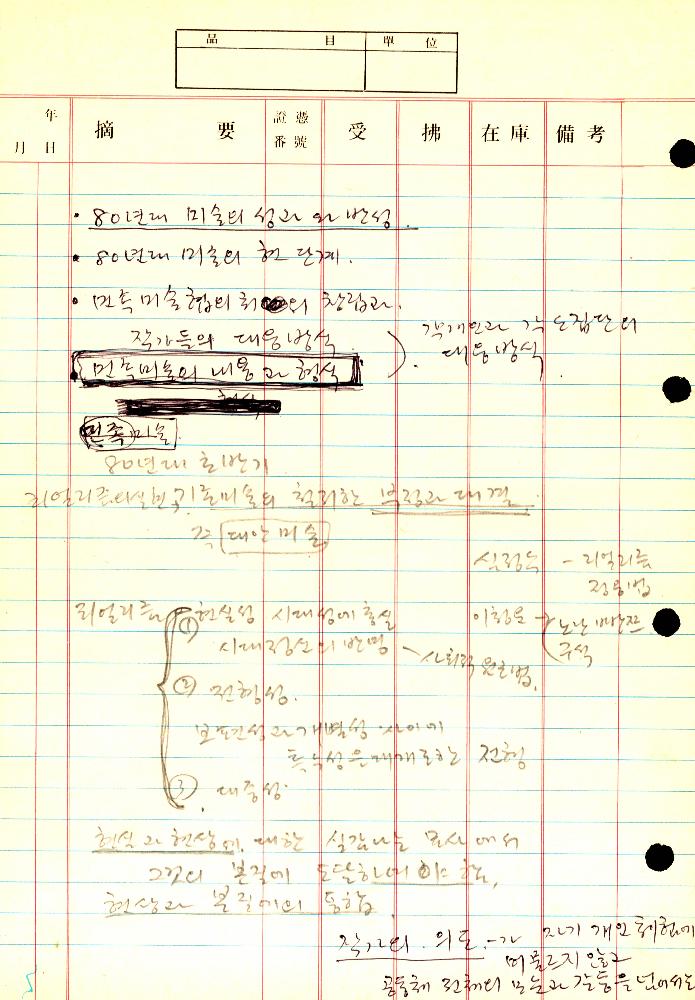 品 目 單 位
年 月 日 摘 要 證憑番號 受 拂 在庫 備考
· 80년대 미술의 성과와 반성.
· 80년대 미술의 현 단계.
· 민족미술협의회의 창립과.
작가들의 대응방식
각개인과 각 소집단의
대응방식
민족미술의 내용과 형식
민족미술
80년대 초반기
기존미술의 철저한 부정과 대결.
즉 대안미술
- 리얼리즘
리얼리즘
① 현실성 시대성에 충실
시대정신의 반영
② 전형성.
보편성과 개별성 사이에
특수성을 매개로 한 전형
③ 대중성.
현실과 현상에 대한 실감나는 묘사에서
그것의 본질에 도달하여야 함,
현상과 본질에의 통합.
작가의 의도 - 가 자기 개인 체험에
머물르지 않고
공동체 전체의 모순과 갈등을 넘어서는